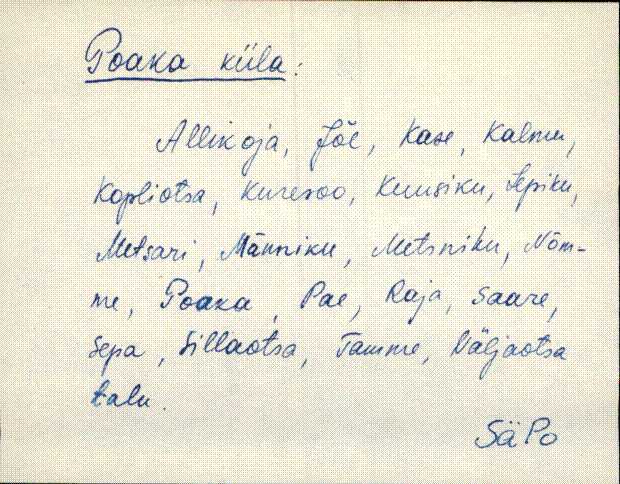 Poaka küla:
Allikoja, Jõe, Kase, Kalmu,
Kopliotsa, Kuresoo, Kuusiku, Lepiku,
Metsari, Männiku, Metsniku, Nõm-
me, Poaka, Pae, Raja, Saare,
Sepa, Sillaotsa, Tamme, Väljaotsa
talu.
SäPo